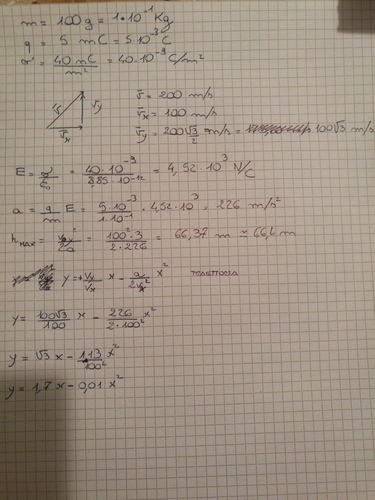 m = 100 g = 1•10⁻¹ Kg
q = 5 mC = 5•10⁻³ C
σ = 40 nC/m² = 40•10⁻⁹ C/m²
v vy vx
v̄ = 200 m/s
v̄x = 100 m/s
v̄y = 200√3/2 m/s = 100√3 m/s
E = σ/ε₀ = 40•10⁻⁹/8,85•10⁻¹² = 4,52•10³ N/C
a = q/m E = 5•10⁻³/1•10⁻¹ • 4,52•10³ = 226 m/s²
hMAX = vy²/2a = 100²•3/2•226 = 66,37 m ≃ 66,4 m
y = + vy/vx x - a/2vx² x²
y = 100√3/100 x - 226/2•100² x²
y = √3 x - 113/100² x²
y = 1,7 x - 0,01 x²